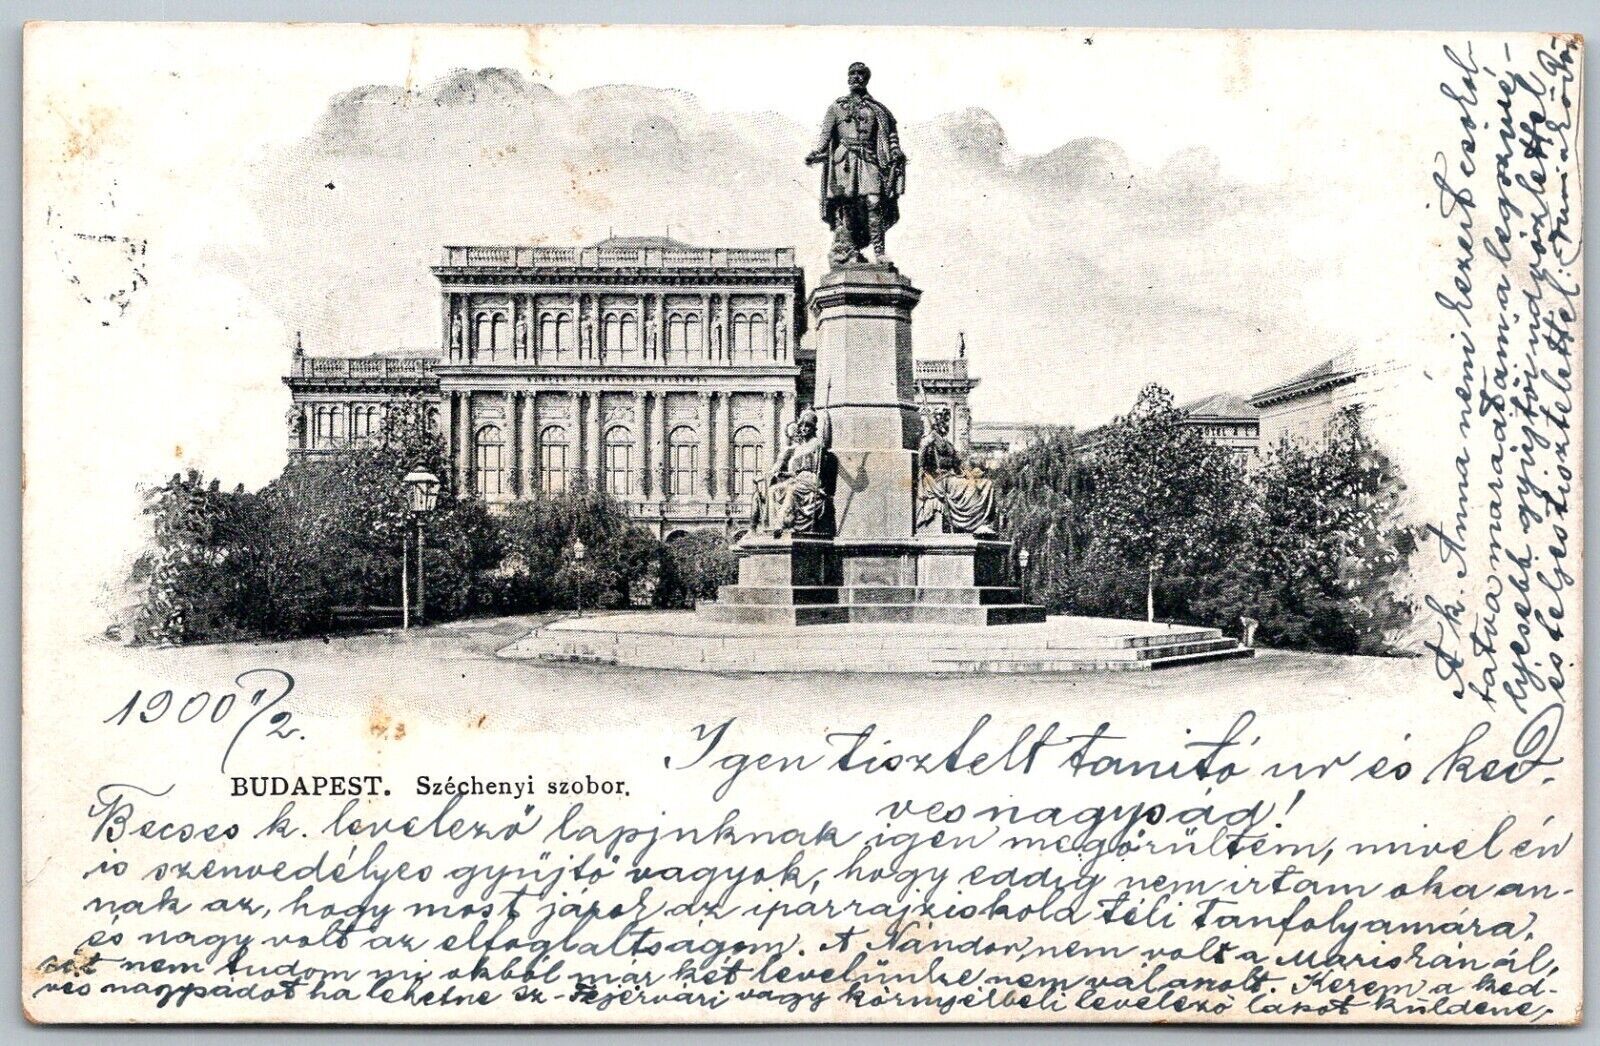 1900 11/2.
BUDAPEST. Széchenyi szobor.
Igen tisztelt tanitó ur és ked-
vesnagysád!
Becses k. levelező lapjuknak igen megörültem, mivel én
is szenvedélyes gyüjtő vagyok, hogy eddig nem irtam oka an-
nak az, hogy most járok az iparrajziskola téli tanfolyamára,
és nagy volt az elfoglaltságom. A Nándor, nem volt a Mariskánál,
sőt nem tudom mi okból már két levelünkre nem válaszolt. Kerem a ked-
ves nagysádot ha lehetne sz-Fejérvári vagy környékbeli levelező lapot küldene,
A k. Anna néni kezeit csókol-
tatva maradtam a legszivé-
lyesebb gyüjtői üdvözlettel
és teljes tisztelettel: